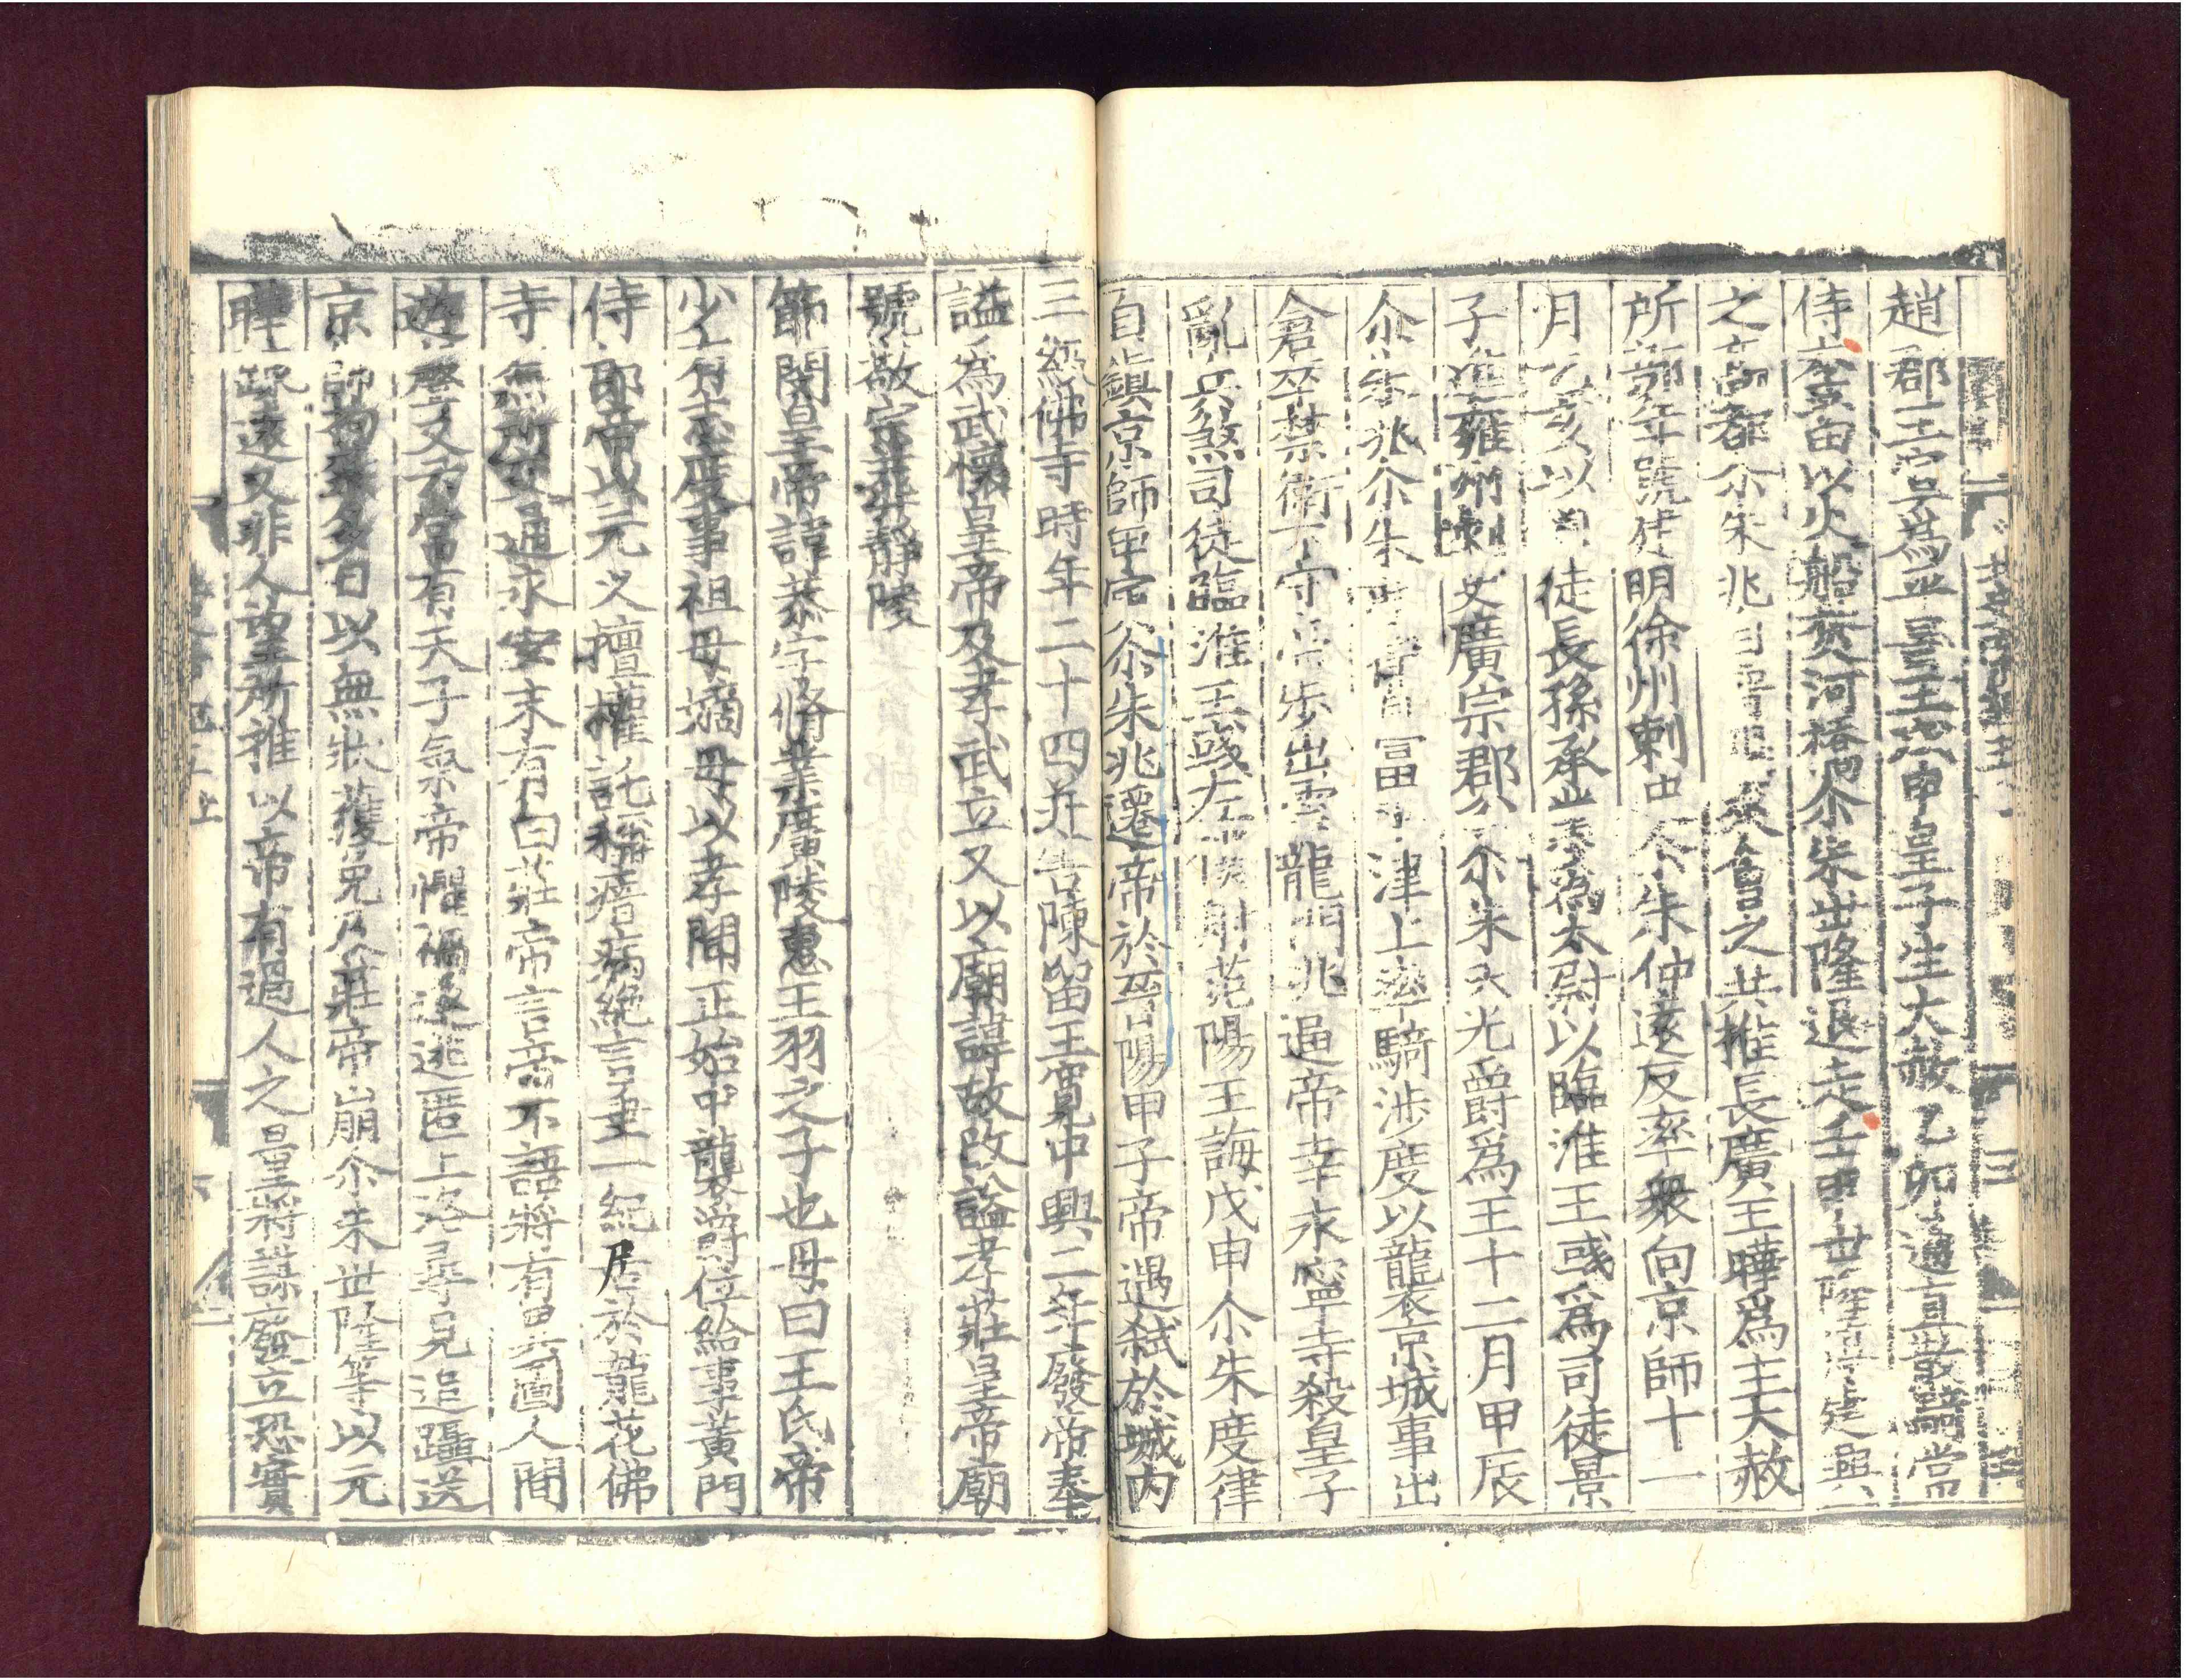 趙郡王寘爲平昌王丙申皇子生大赦乙卯通直散騎常
侍李苗以火船焚河橋尒朱世隆退走壬申世隆停建興
之高都尒朱兆自晉陽來會之共推長廣王曄爲主大赦
所部年號建明徐州刺史尒朱仲遠反率衆向京師十一
月乙亥以司徒長孫承業爲太尉以臨淮王彧爲司徒景
子進雍州刺史廣宗郡公尒朱天光爵爲王十二月甲辰
尒朱兆尒朱度律自富平津上率騎涉度以襲京城事出
倉卒禁衛不守帝步出雲龍門兆逼帝幸永寧寺殺皇子
亂兵煞司徒臨淮王彧左僕射范陽王誨戊申尒朱度律
自鎮京師甲寅尒朱兆遷帝於晉陽甲子帝遇弑於城内
三級佛寺時年二十四并害陳留王寬中興二年廢帝奉
謚爲武懷皇帝及孝武立又以廟諱故改謚孝莊皇帝廟
號敬宗葬靜陵
節閔皇帝諱恭字脩業廣陵惠王羽之子也母曰王氏帝
少有志度事祖母嫡母以孝聞正始中襲爵位給事黃門
侍郎帝以元乂擅權託稱瘖病絕言垂一紀居於龍花佛
寺無所交通永安末有白莊帝言帝不語將有異圖人間
遊聲又云當有天子氣帝懼禍逐逃匿上洛尋見追躡送
京師拘禁多日以無狀獲免及莊帝崩尒朱世隆等以元
曄疎遠又非人望所推以帝有過人之量將謀廢立恐實